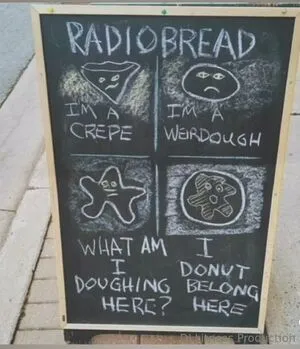 RADIOBREAD
I'M A
CREPE
I'M A
WEIRDOUGH
WHAT AM
I
DOUGHING
HERE?
I
DONUT
BELONG
HERE
Production